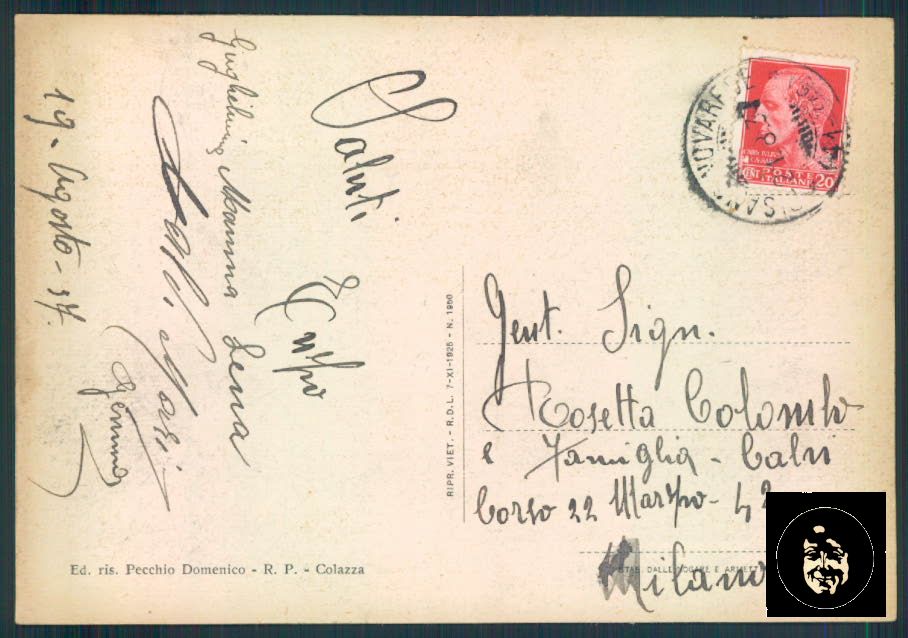 19. Agosto - 37.
Saluti
Guglielmina Mamma Lena
Gemma
Gent. Sign.
Rosetta Colombo
e Famiglia - Calvi
Corso 22 Marzo - 42
Milano
RIPR. VIET. - R.D.L. 7-XI-1925 - N. 1950
Ed. ris. Pecchio Domenico - R. P. - Colazza
POSTE
ITALIANE
CENT 20
NOVARESE